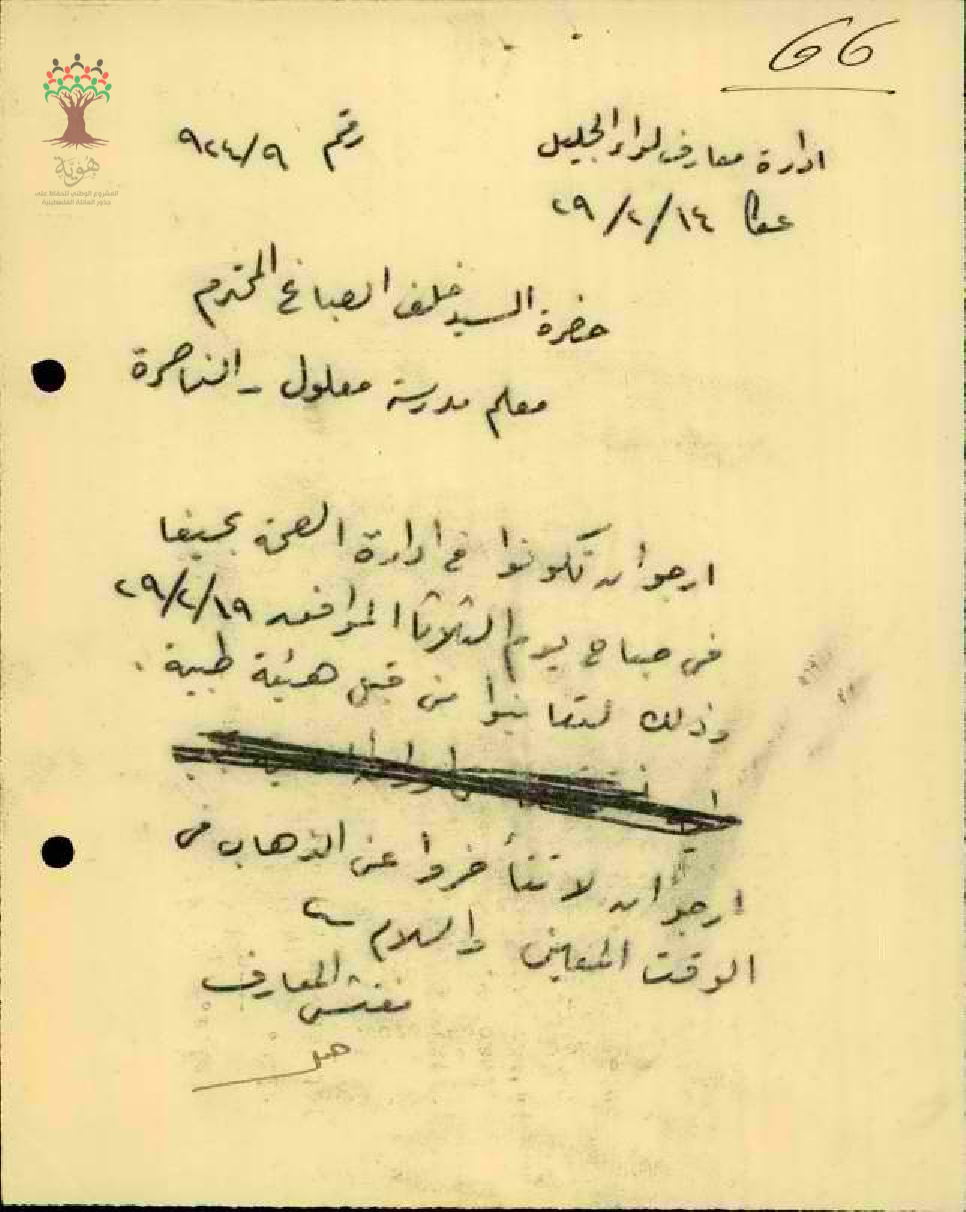 66
ادارة معارف لواء الجليل رقم ٩٢٤/٩
عكا ٢٩/٢/١٤
حضرة السيد خلف الصباغ المحترم
معلم مدرسة معلول - الناصرة
ارجو ان تكونوا في ادارة الصحة بحيفا
في صباح يوم الثلاثا الموافق ٢٩/٢/١٩
وذلك لتعاينوا من قبل هيئة طبية .
ارجو ان لا تتأخروا عن الذهاب في
الوقت المعين والسلام
مفتش المعارف
هوية
المشروع الوطني للحفاظ على
جذور العائلة الفلسطينية